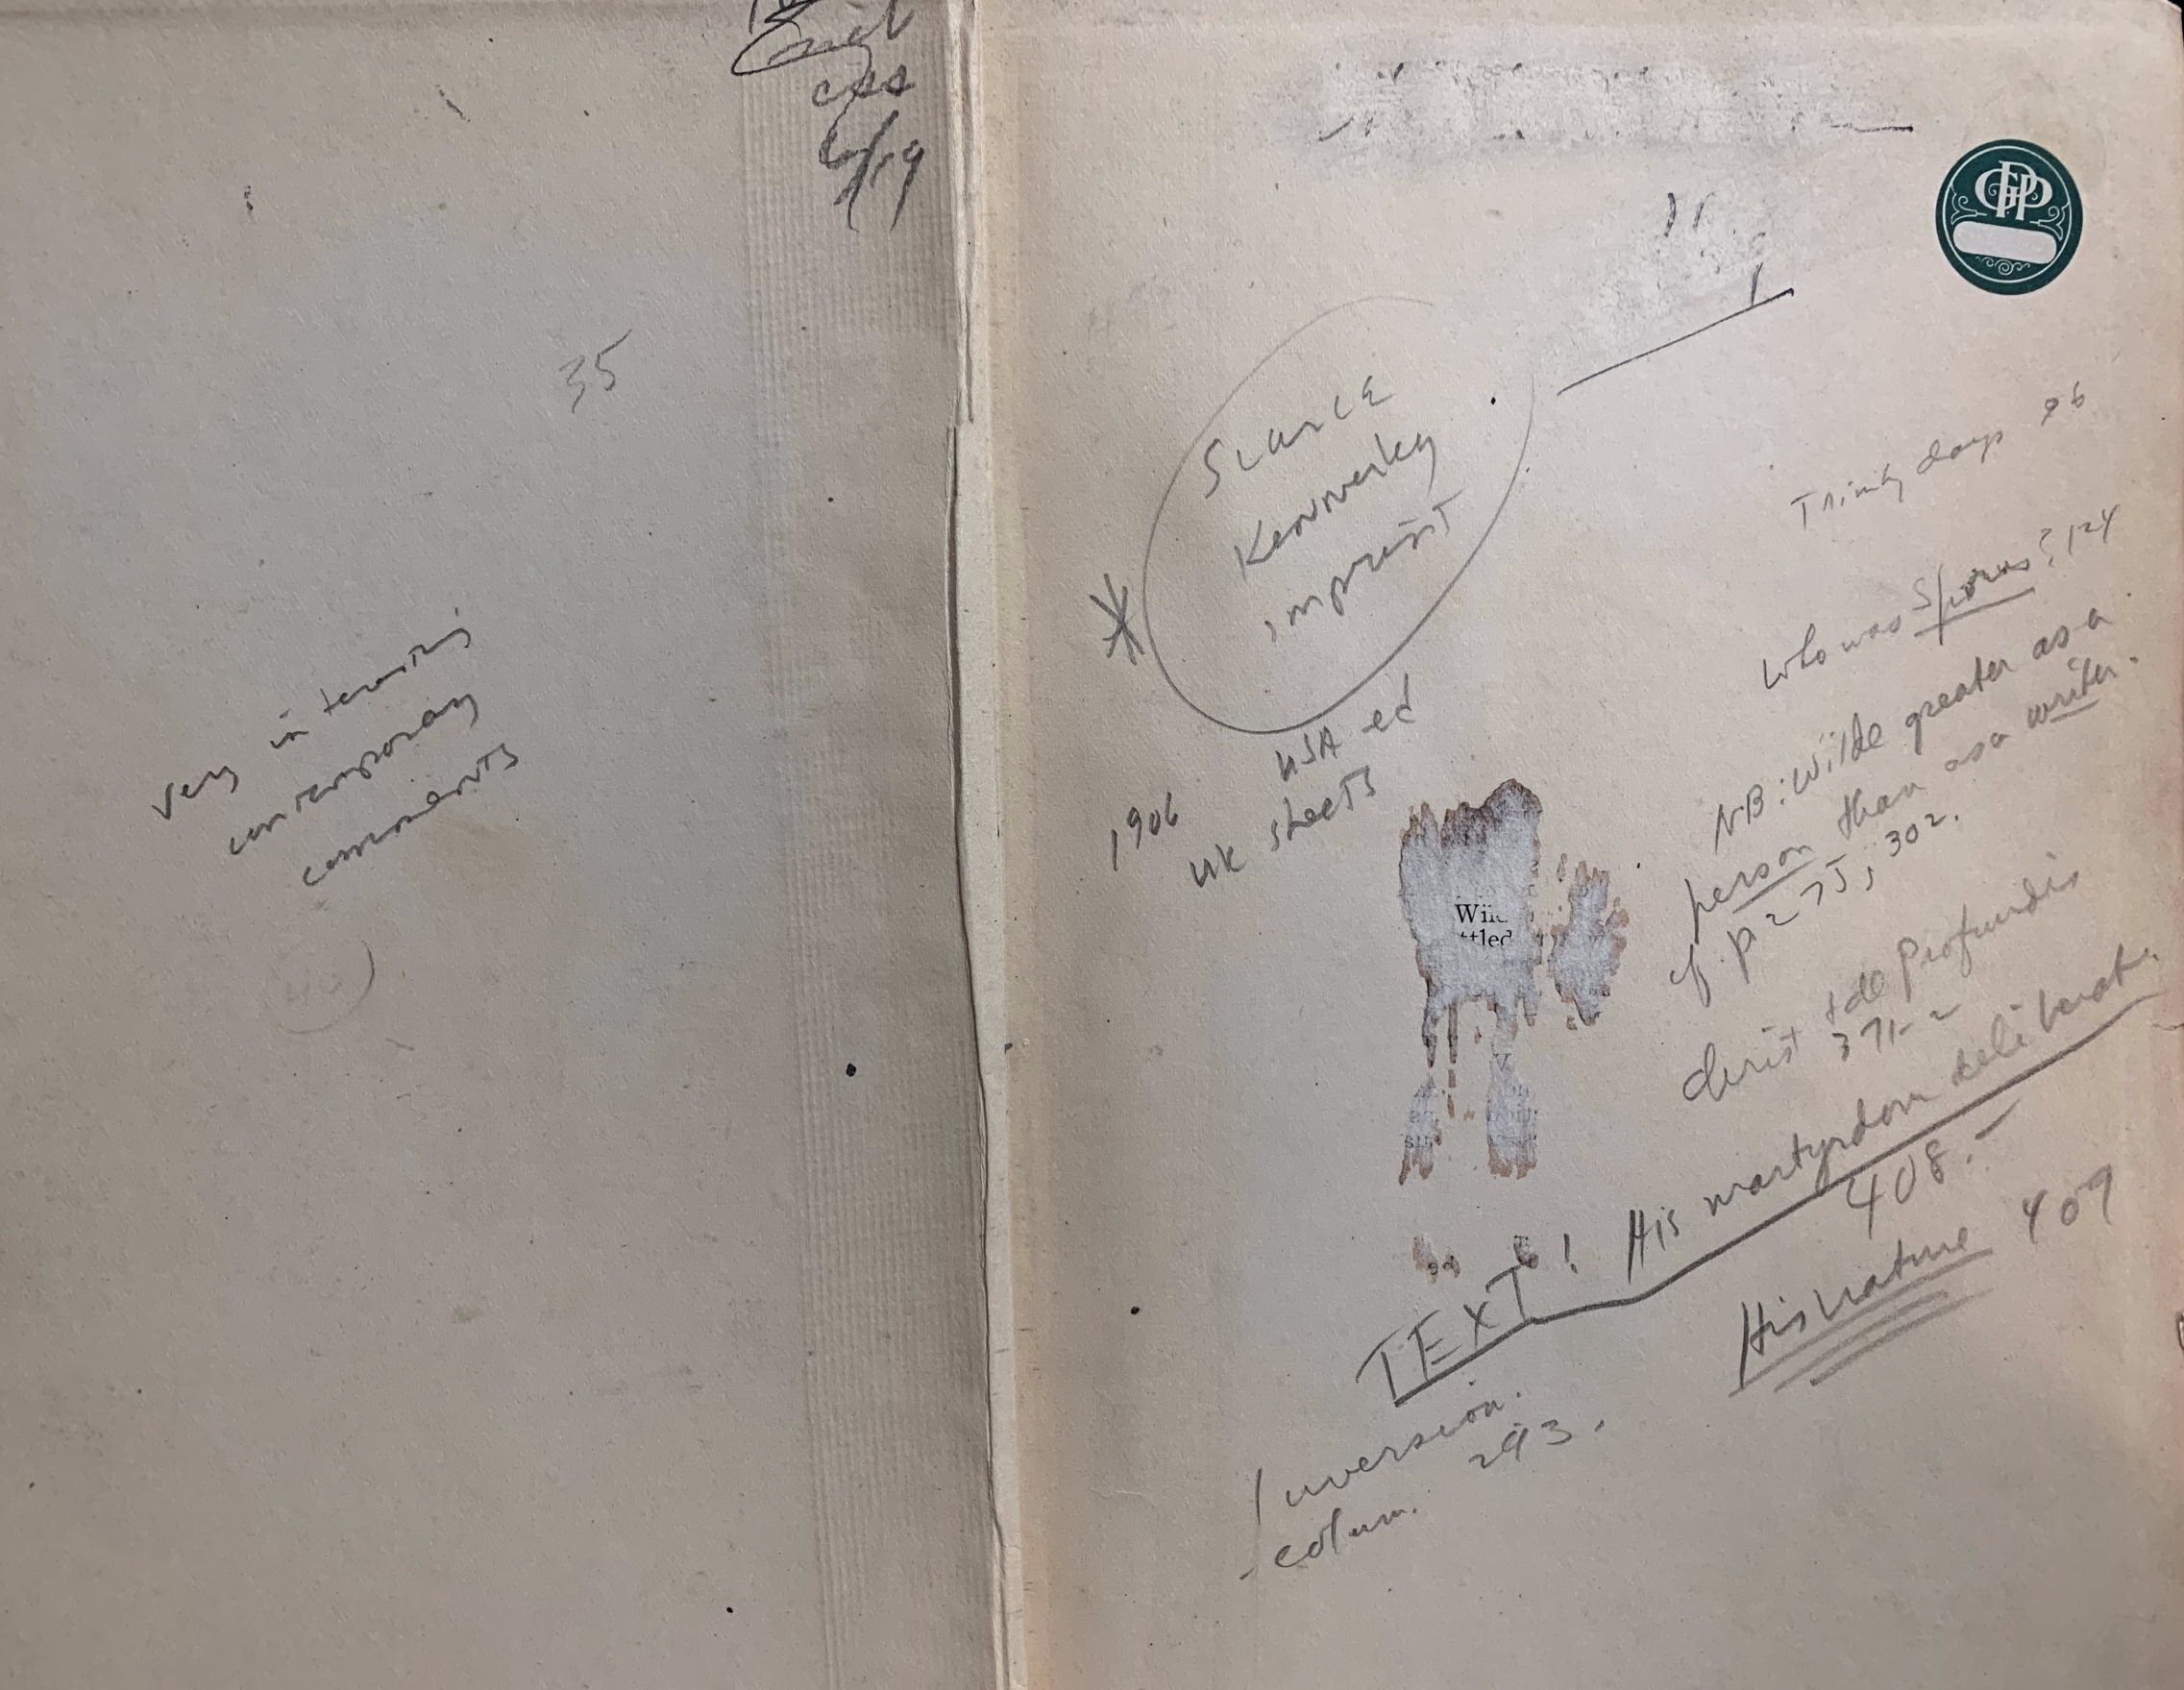 ces
6/19
35
Very interesting
contemporary
comments
GPP
Scarce
Kennerley
imprint
USA ed
1906
UK sheets
Trinity days 26
Who was Sporus? 124
NB: Wilde greater as a
person than as a writer.
cf. p 275, 302.
Christ + de Profundis
371-2
Wil
ttled
TEXT! His martyrdom deliberate.
408.-
His nature 409
Inversion.
293.